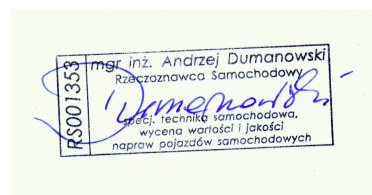 RS001353
mgr inż. Andrzej Dumanowski
Rzeczoznawca Samochodowy
Dumanowski
specj. technika samochodowa,
wycena wartości i jakości
napraw pojazdów samochodowych